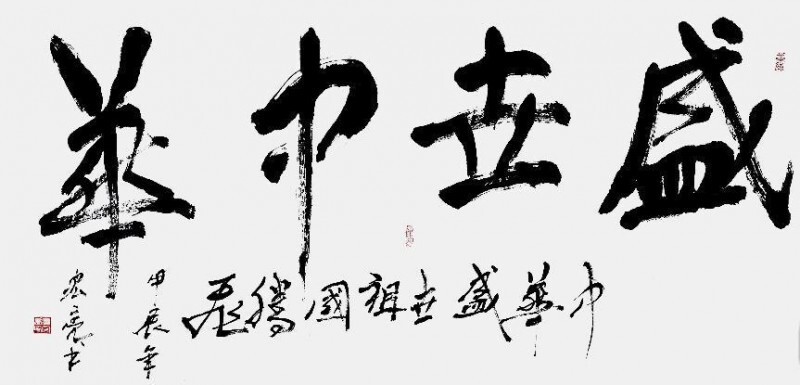 盛世中華
中華盛世祖國騰飛
甲辰年
亮书